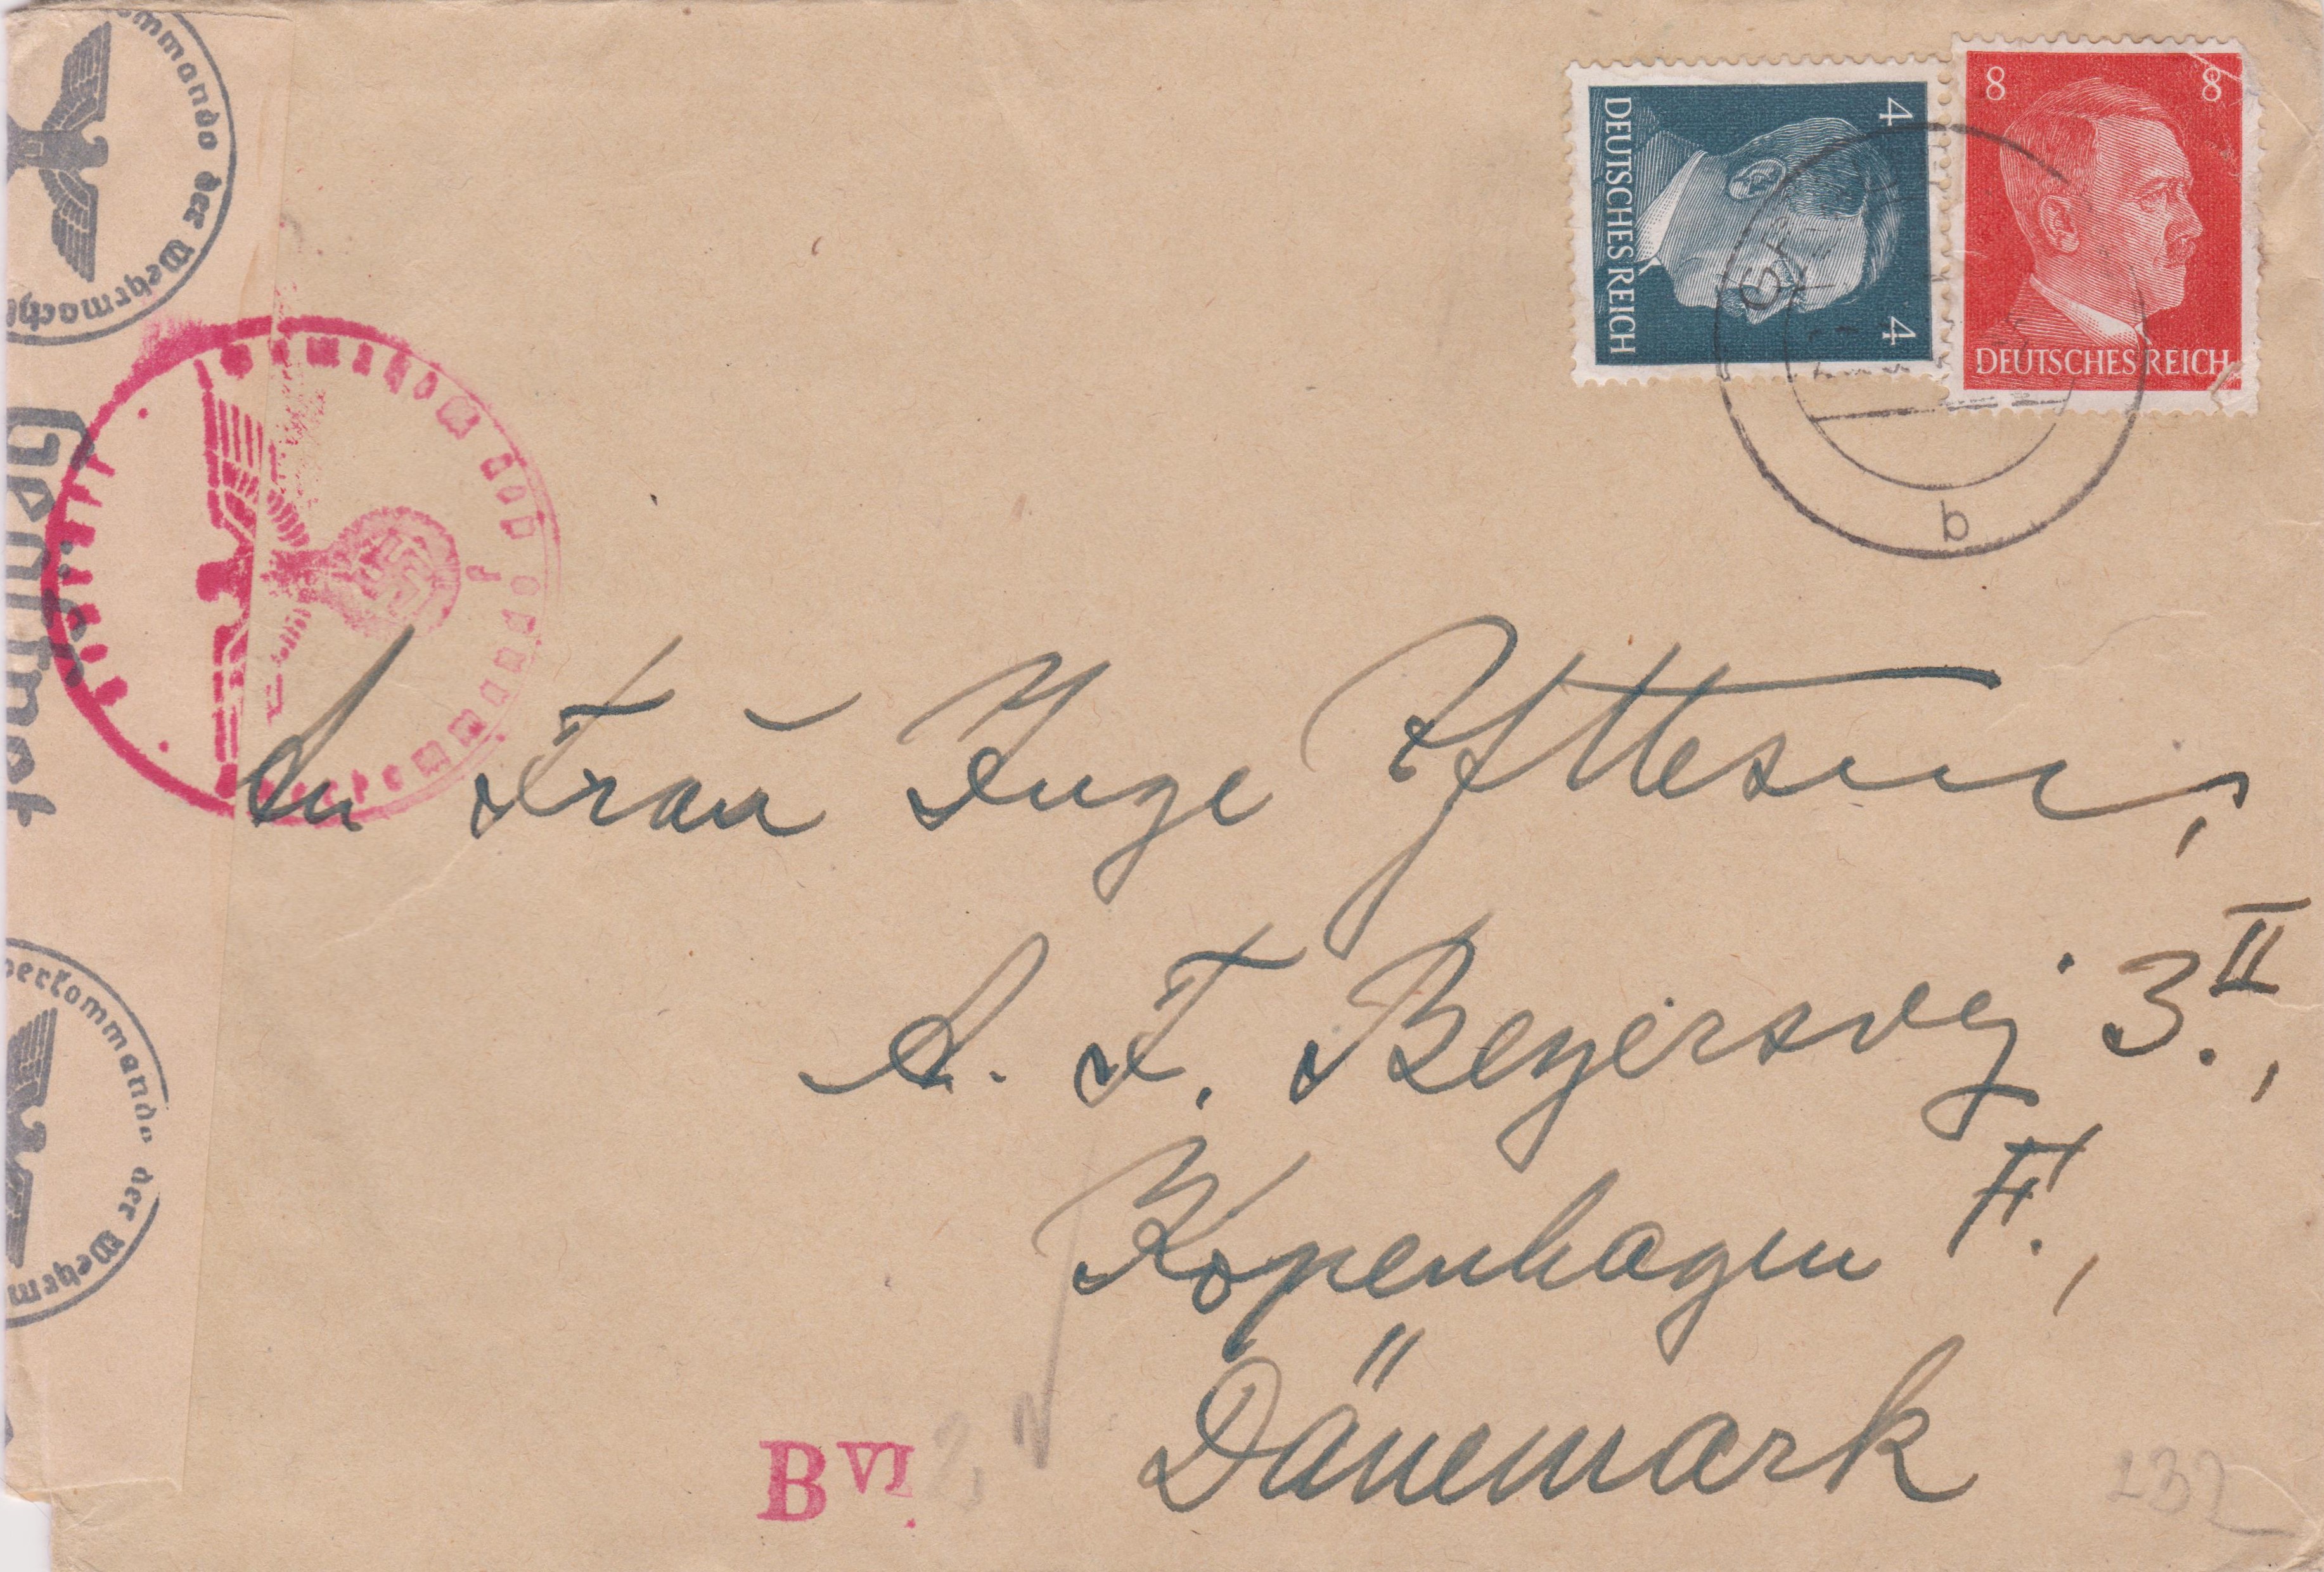 8 8
DEUTSCHES REICH
4 4
DEUTSCHES REICH
b
kommando der Wehrmacht
Geöffnet
Oberkommando der Wehrm
An Frau Inge
A. F. Beyersvej 3. II,
Kopenhagen F.,
Dänemark
B VI.
232